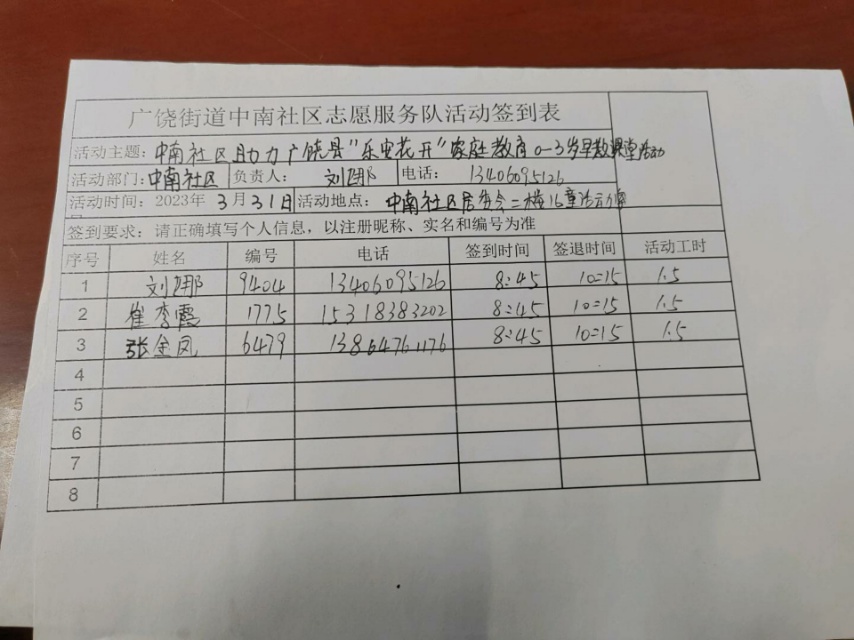 广饶街道中南社区志愿服务队活动签到表
活动主题：中南社区助力广饶县“乐安花开”家庭教育0-3岁早教课堂活动
活动部门：中南社区 负责人： 刘 娜 电话： 13406095126
活动时间：2023年 3月31日 活动地点： 中南社区居委会二楼儿童活动
签到要求：请正确填写个人信息，以注册昵称、实名和编号为准
序号 姓名 编号 电话 签到时间 签退时间 活动工时
1 刘 娜 9404 13406095126 8:45 10:15 1.5
2 崔秀霞 1775 15318383202 8:45 10:15 1.5
3 张金凤 6479 13864761176 8:45 10:15 1.5
4
5
6
7
8